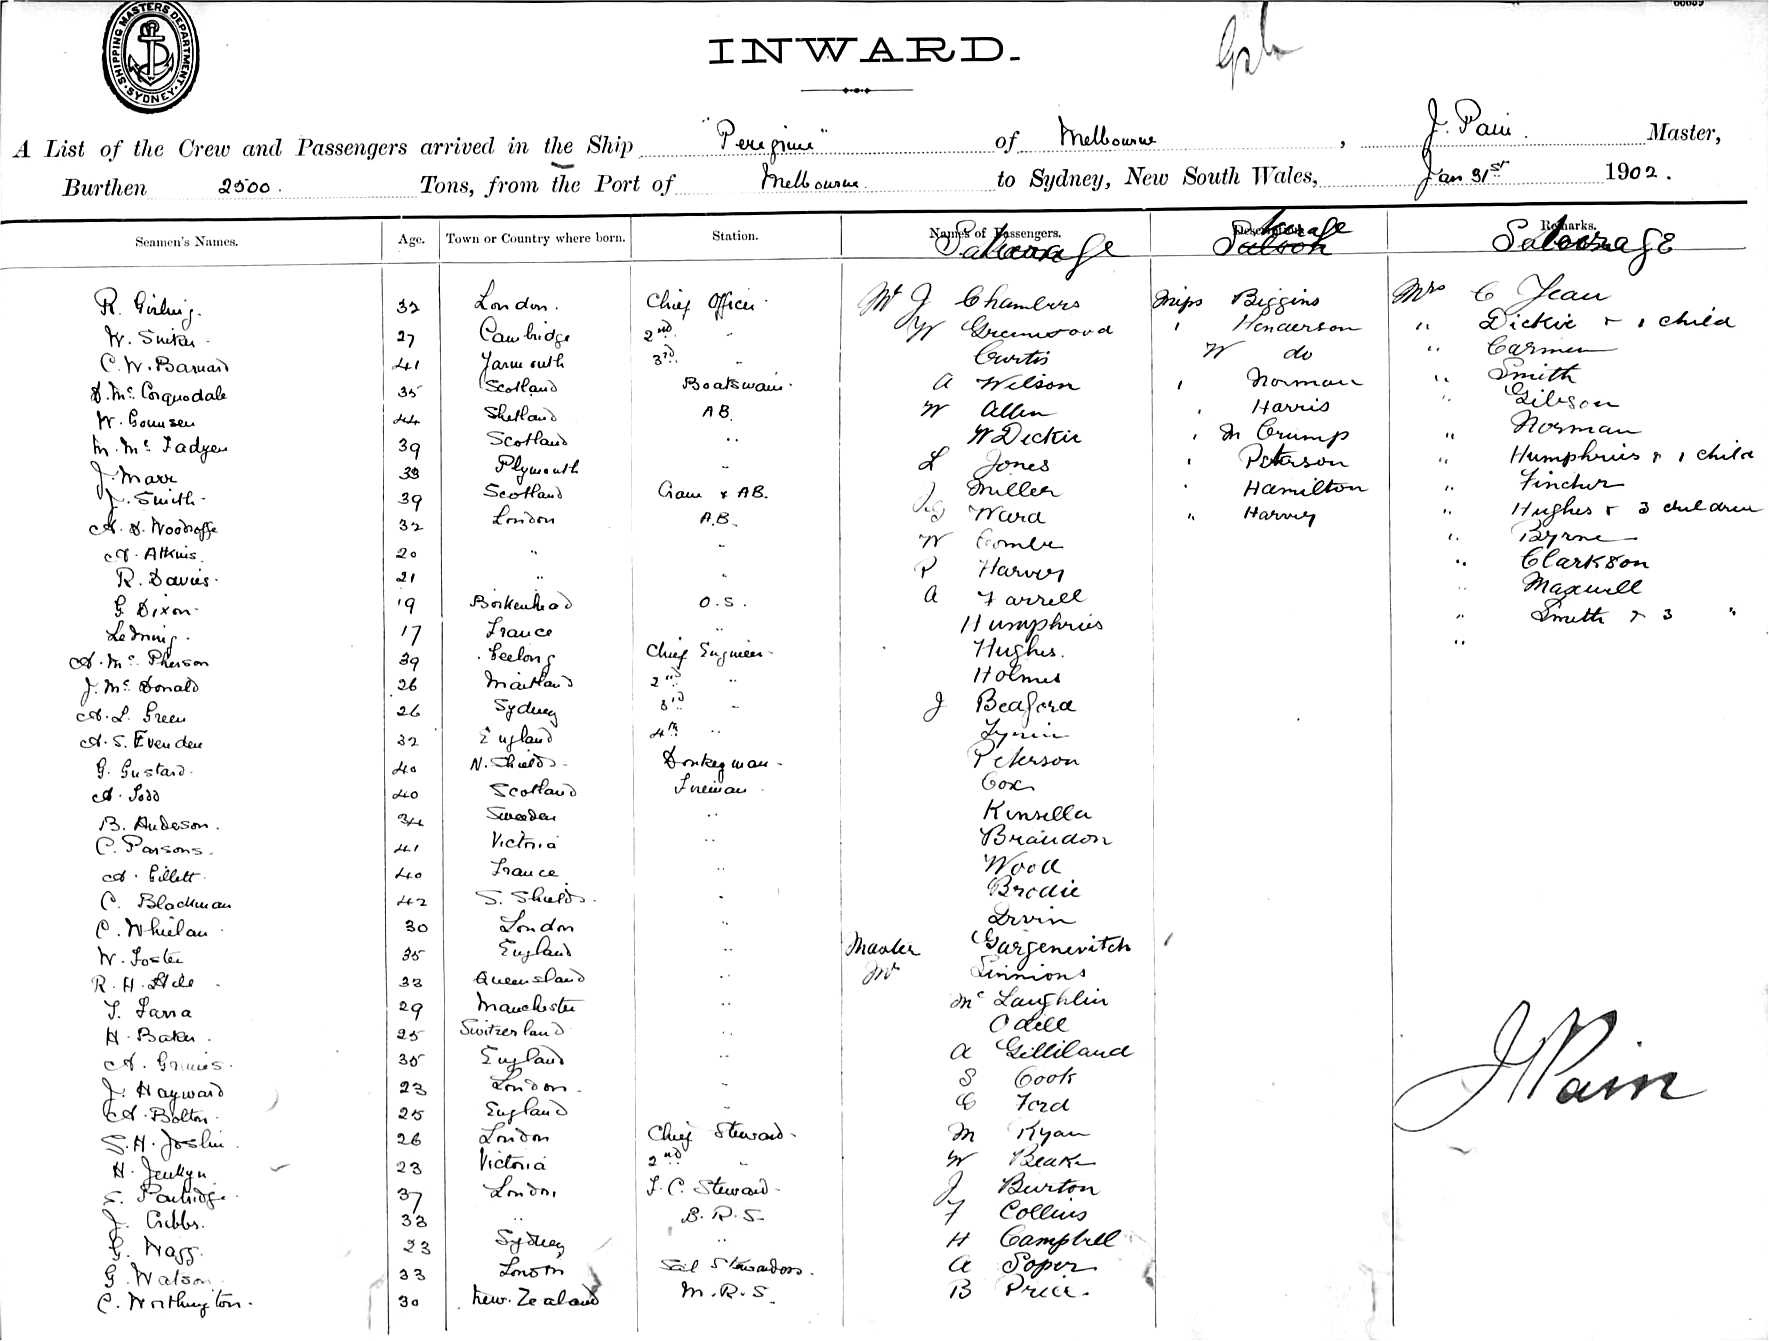 SHIPPING MASTERS DEPARTMENT SYDNEY
INWARD.
A List of the Crew and Passengers arrived in the Ship "Peregrine" of Melbourne, J. Pain. Master,
Burthen 2500. Tons, from the Port of Melbourne. to Sydney, New South Wales, Jan 31st 1902.
Seamen's Names. Age. Town or Country where born. Station. Names of Passengers. Descriptions. Remarks.
Steerage
R. Girling. 32 London. Chief Officer Mr J Chambers Miss Biggins Mrs C Jean
W. 27 Cambridge 2nd " W Greenwood " Henderson " Dickie & 1 child
C. W. Barnard 41 Yarmouth 3rd " Curtis W do " Carmen
D. Mc Corquodale 35 Scotland Boatswain. A Wilson " Norman " Smith
W. 44 Shetland AB. W Allen " Harris " Gibson
M. Mc Fadyen 39 Scotland " W Dickie " M Crump " Norman
J. Marr 33 Plymouth " L Jones " Peterson " Humphries & 1 child
J. Smith 39 Scotland & AB. J Miller " Hamilton " Fincher
A. D. Woodroffe 32 London A.B. G Ward " Harvey " Hughes & 3 children
A. Atkins 20 " " W Combe " Byrne
R. Davies. 21 " " P Harvey " Clarkson
G. Dixon. 19 Birkenhead O.S. A Farrell " Maxwell
17 France " Humphries " Smith & 3 "
A. Mc Pherson 39 Geelong Chief Engineer Hughes. "
J. Mc Donald 26 Maitland 2nd " Holmes
A. L. Green 26 Sydney 3rd " J Beaford
A. S. Evenden 32 England 4th "
G. Gustard. 40 N. Shields. Donkeyman. Peterson
A. Todd 40 Scotland Fireman Cox
B. Anderson. 34 Sweden " Kinsella
C. Parsons. 41 Victoria " Brandon
A. Gillett. 40 France " Wood
C. Blackman 42 S. Shields. " Brodie
C. Whielan 30 London " Irvin
W. Foster 35 England " Master Gargenevitch
R. H. 33 Queensland " Mr Simmons
29 Manchester " Mc Laughlin
H. Baker. 25 Switzerland " Odell
A. Grimes. 35 England " A Gilliland
J. Hayward 23 London. " S Cook
A. Bolton. 25 England " C Ford
S. H. Joslin 26 London Chief Steward. M Ryan
H. Jenkyn 23 Victoria 2nd " W Beake
E. Partridge. 37 London F. C. Steward. J Burton
J. Gibbs. 33 " B. R. S. F Collins
G. Wagg. 23 Sydney " H Campbell
G. Watson 33 London A Soper
C. Worthington. 30 New Zealand M. R. S. B Price.
J Pain